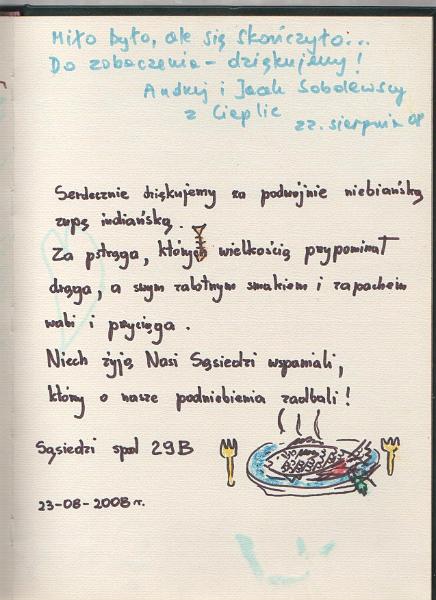 Miło było, ale się skończyło...
Do zobaczenia - dziękujemy!
Andrzej i Jacek Sobolewscy
z Cieplic
22. sierpnia 08
Serdecznie dziękujemy za podwójnie niebiańską
zupę indiańską.
Za pstrąga, który wielkością przypominał
drąga, a swym zalotnym smakiem i zapachem
wabi i przyciąga.
Niech żyją Nasi Sąsiedzi wspaniali,
którzy o nasze podniebienia zadbali!
Sąsiedzi spod 29B
23-08-2008 r.